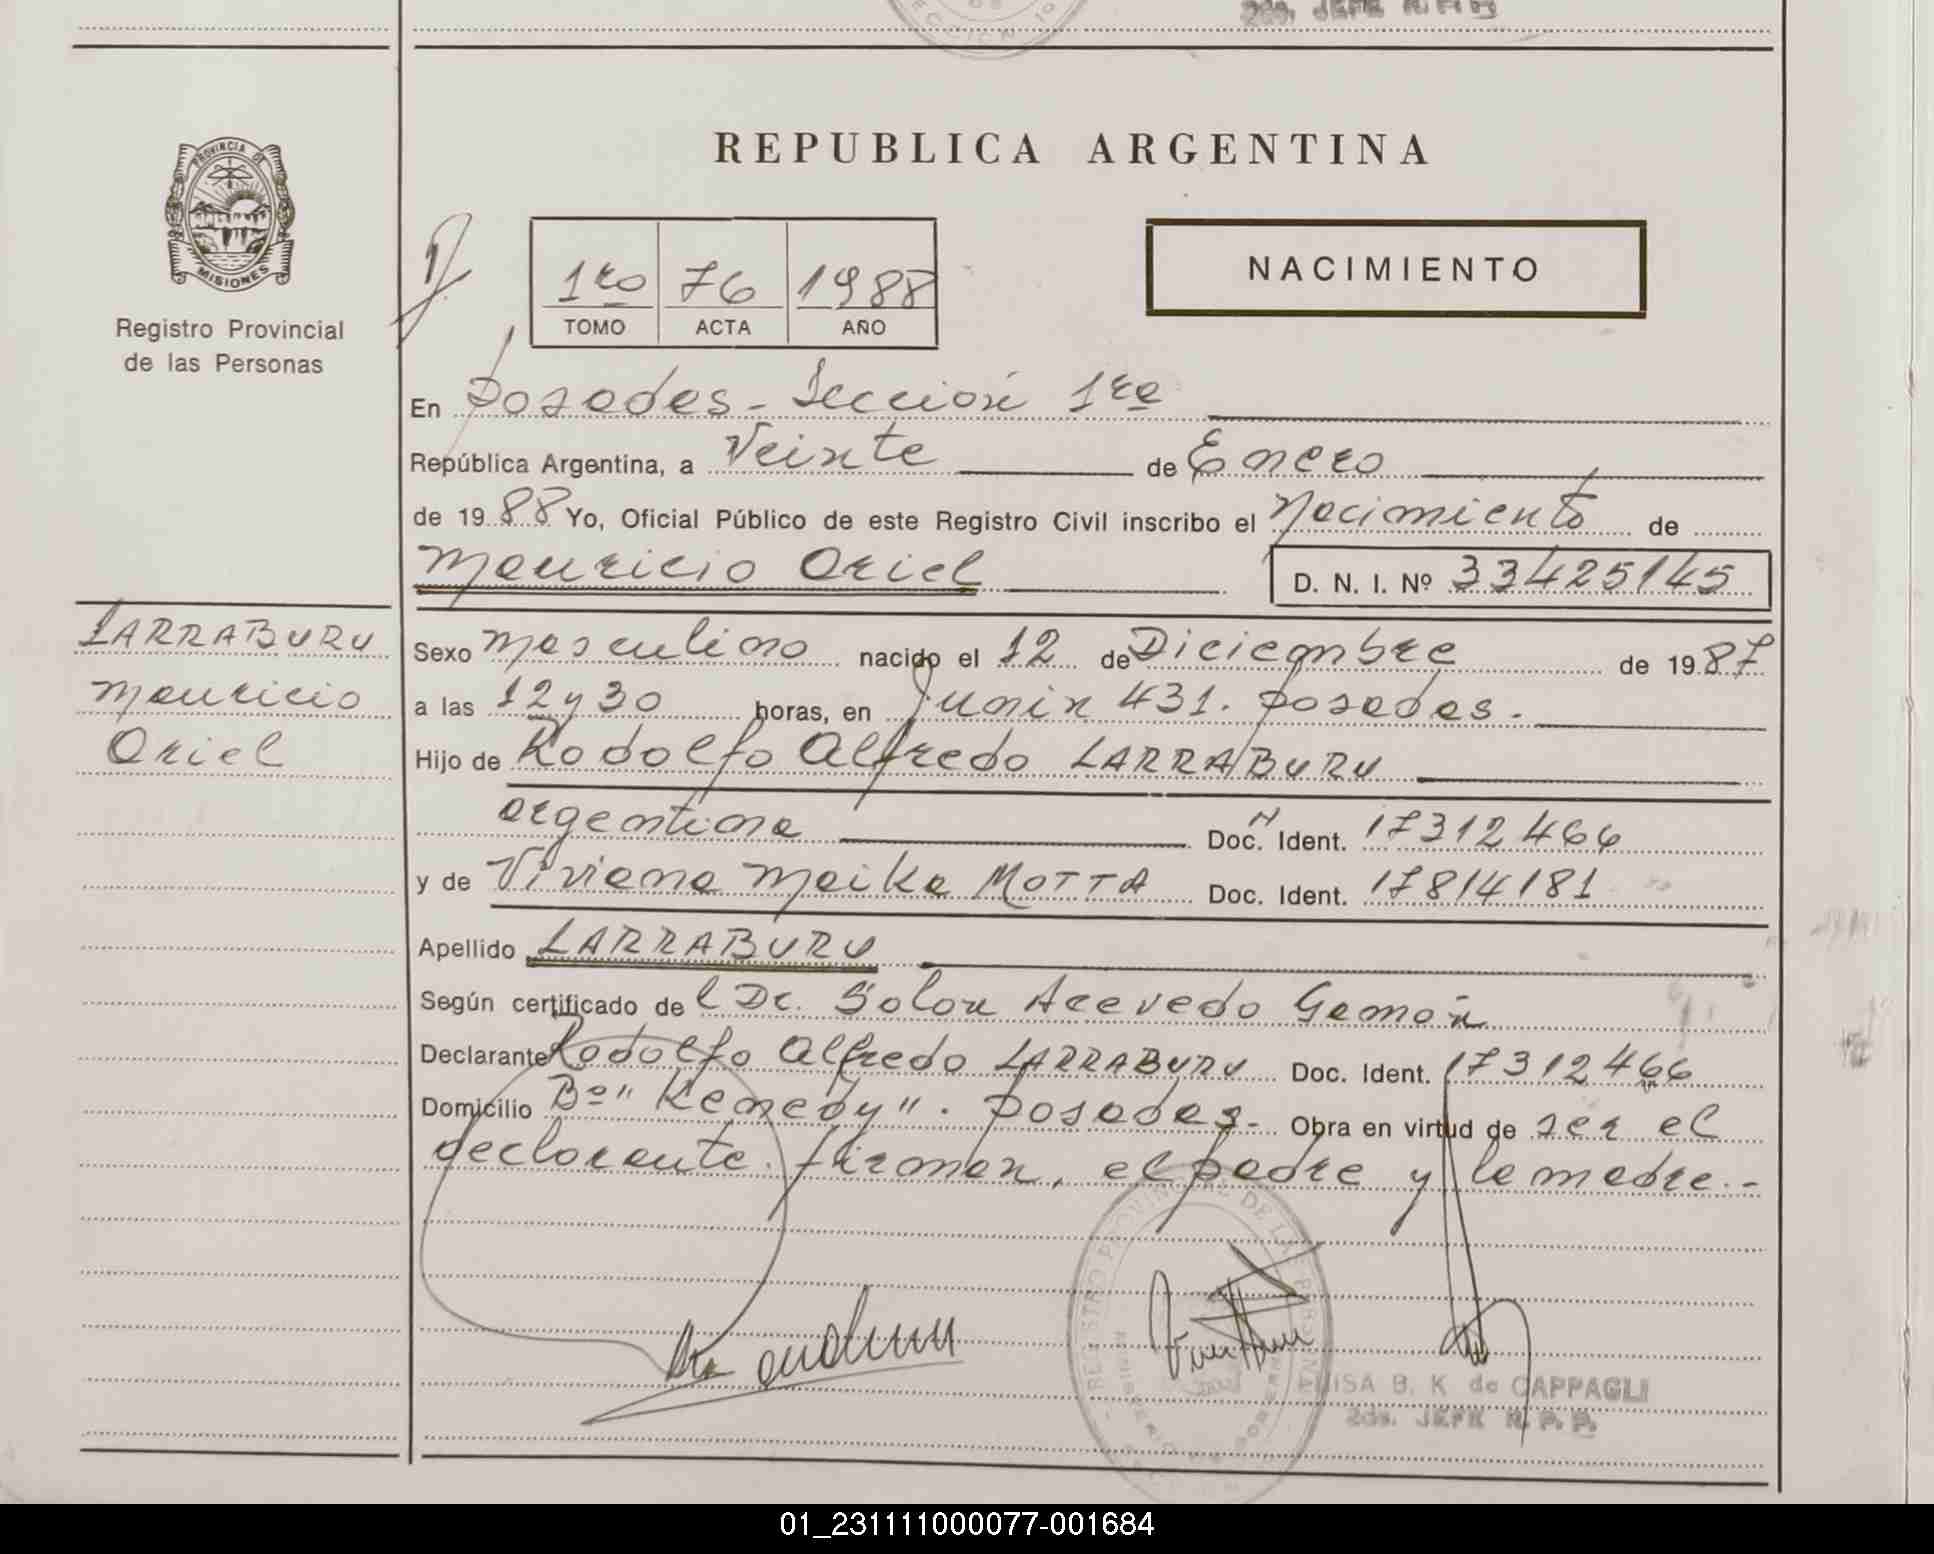 2do. JEFE R.P.P.
REPUBLICA ARGENTINA
PROVINCIA DE
MISIONES
Registro Provincial
de las Personas
1ro 76 1988
TOMO ACTA AÑO
NACIMIENTO
En Posadas - Sección 1ra
República Argentina, a Veinte de Enero
de 1988 Yo, Oficial Público de este Registro Civil inscribo el Nacimiento de
Mauricio Oriel D. N. I. Nº 33425145
LARRABURU
Mauricio
Oriel
Sexo Masculino nacido el 12 de Diciembre de 1987
a las 12 y 30 horas, en Junin 431. Posadas.
Hijo de Rodolfo Alfredo LARRABURU
argentina Doc. Ident. 17312466
y de Viviana Meike MOTTA Doc. Ident. 17814181
Apellido LARRABURU
Según certificado del Dr. Solon Acevedo Gamón
Declarante Rodolfo Alfredo LARRABURU Doc. Ident. 17312466
Domicilio Bº "Kenedy". Posadas. Obra en virtud de ser el
declarante. firman, el padre y la madre.-
REGISTRO PROVINCIAL DE LAS PERSONAS
ELISA B. K. de CAPPAGLI
2do. JEFE R. P. P.
01_231111000077-001684